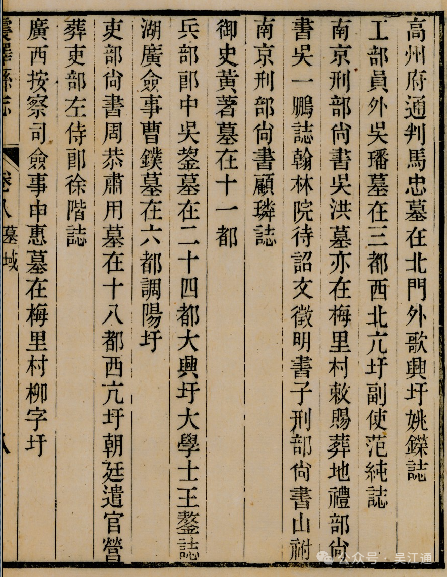 高州府通判馬忠墓在北門外歌興圩姚鏷誌
工部員外吳璠墓在三都西北亢圩副使范純誌
南京刑部尚書吳洪墓亦在梅里村敕賜葬地禮部尚
書吳一鵬誌翰林院待詔文徵明書子刑部尚書山祔
南京刑部尚書顧璘誌
御史黃著墓在十一都
兵部郎中吳鋆墓在二十四都大興圩大學士王鏊誌
湖廣僉事曹鏷墓在六都調陽圩
吏部尚書周恭肅用墓在十八都西亢圩朝廷遣官營
葬吏部左侍郎徐階誌
廣西按察司僉事申惠墓在梅里村柳字圩
震澤縣志
卷八
墓域
八
公众号·吴江通